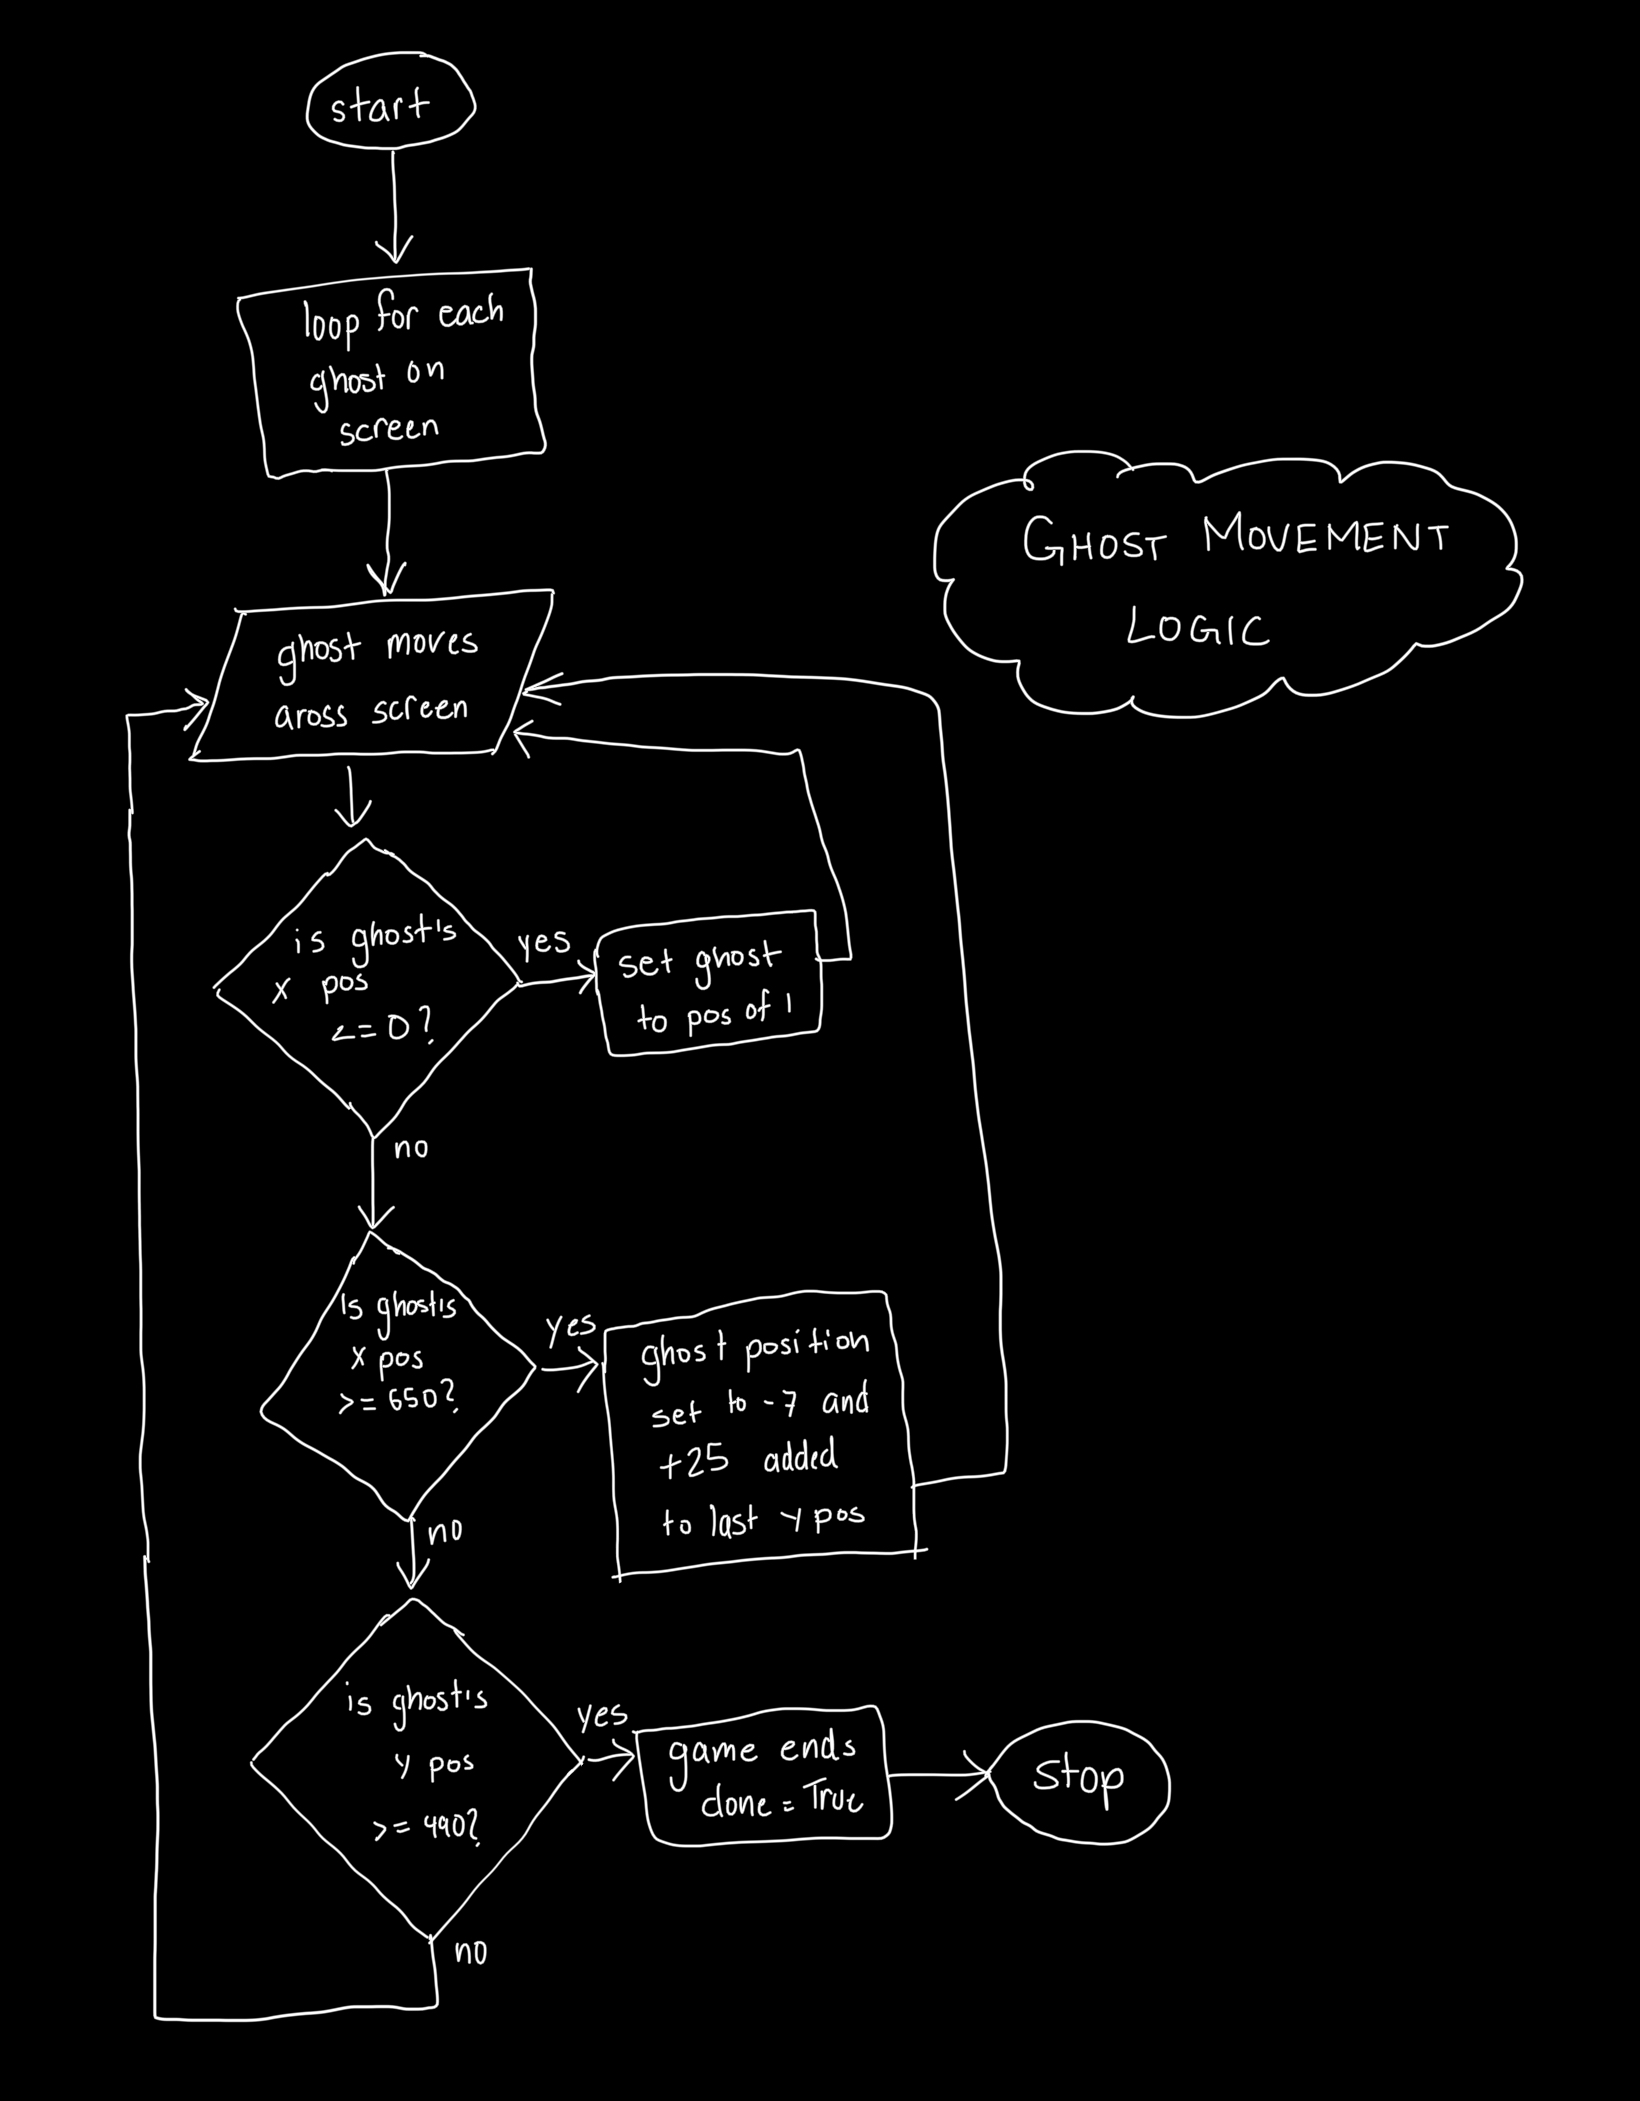 start
loop for each
ghost on
screen
GHOST MOVEMENT
LOGIC
ghost moves
aross screen
is ghost's
x pos
<=0?
yes
set ghost
to pos of 1
no
Is ghost's
x pos
>=650?
yes
ghost position
set to -7 and
+25 added
to last y pos
no
is ghost's
y pos
>=490?
yes
game ends
done = True
stop
no